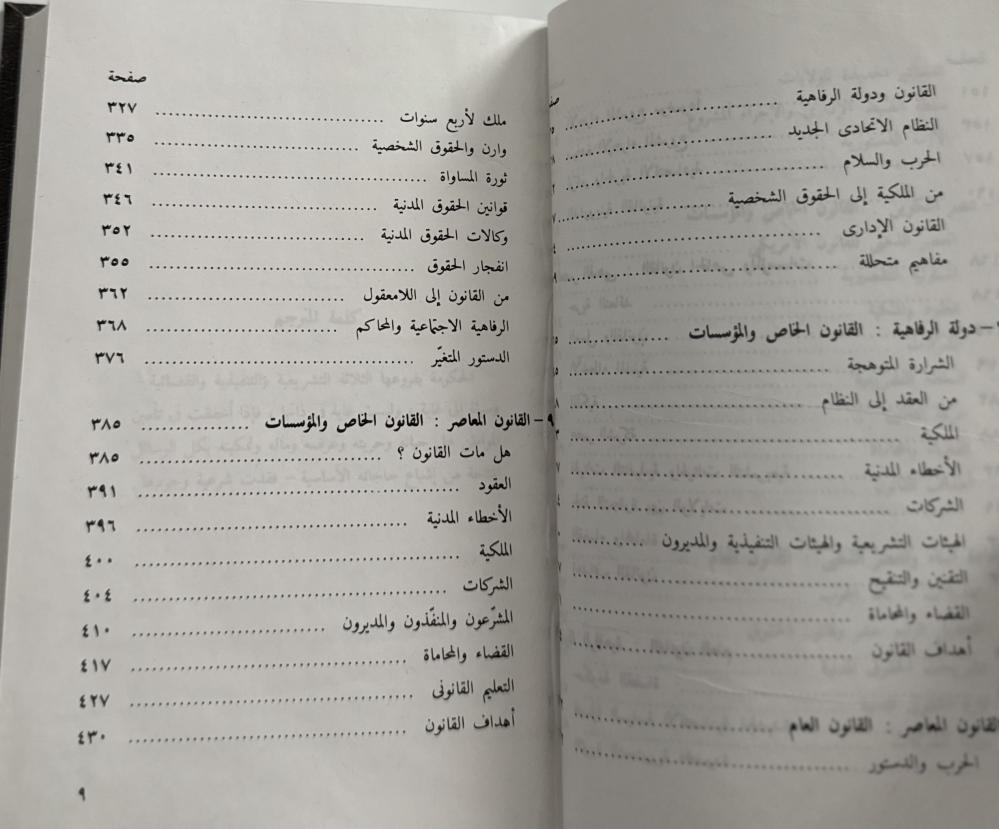 القانون ودولة الرفاهية
النظام الاتحادى الجديد
الحرب والسلام
من الملكية إلى الحقوق الشخصية
القانون الإدارى
مفاهيم متحللة
دولة الرفاهية : القانون الخاص والمؤسسات
الشرارة المتوهجة
من العقد إلى النظام
الملكية
الأخطاء المدنية
الشركات
الهيئات التشريعية والهيئات التنفيذية والمديرون
التقنين والتنقيح
القضاء والمحاماة
أهداف القانون
القانون المعاصر : القانون العام
الحرب والدستور
صفحة
ملك لأربع سنوات ٣٢٧
وارن والحقوق الشخصية ٣٣٥
ثورة المساواة ٣٤١
قوانين الحقوق المدنية ٣٤٦
وكالات الحقوق المدنية ٣٥٢
انفجار الحقوق ٣٥٥
من القانون إلى اللامعقول ٣٦٢
الرفاهية الاجتماعية والمحاكم ٣٦٨
الدستور المتغيّر ٣٧٦
٩ - القانون المعاصر : القانون الخاص والمؤسسات ٣٨٥
هل مات القانون ؟ ٣٨٥
العقود ٣٩١
الأخطاء المدنية ٣٩٦
الملكية ٤٠٠
الشركات ٤٠٤
المشرّعون والمنفّذون والمديرون ٤١٠
القضاء والمحاماة ٤١٧
التعليم القانونى ٤٢٧
أهداف القانون ٤٣٠
٩